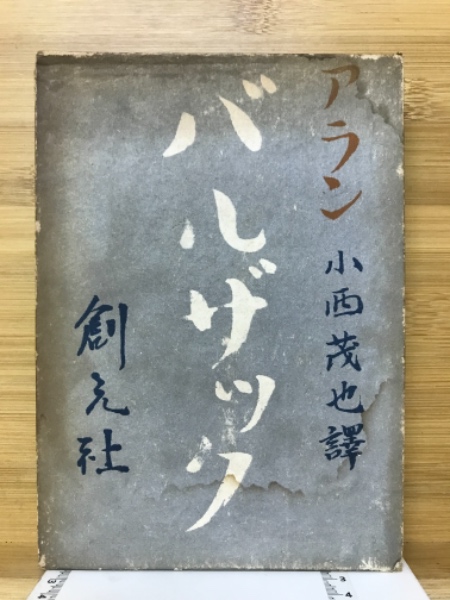 アラン
小西茂也譯
バルザック
創元社
3
4
3
4